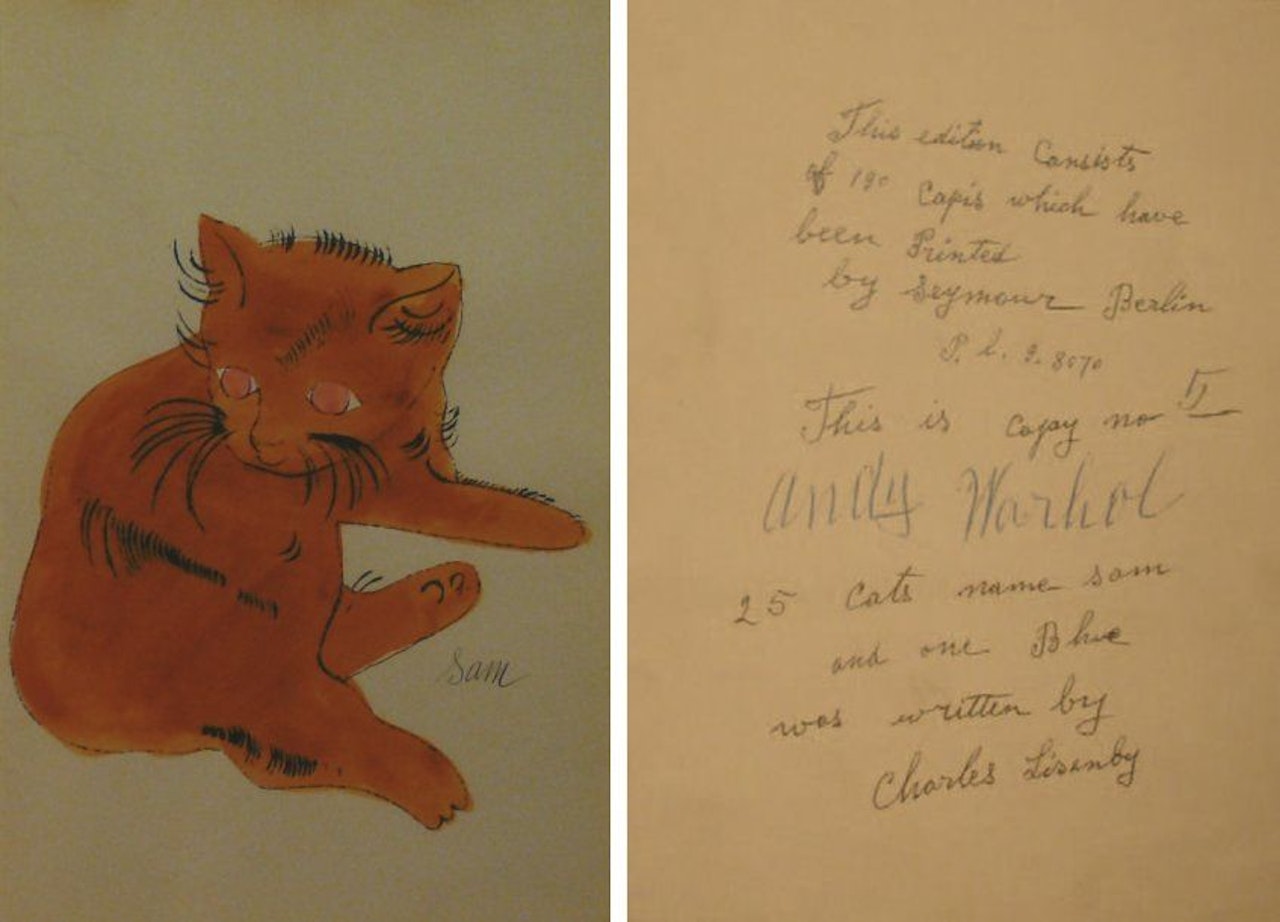 Sam
This edition Consists
of 190 Capis which have
been Printed
by Seymour Berlin
P. l. 9. 8070
This is copay no
Andy Warhol
25 Cats name sam
and one Blue
was written by
Charles Lisanby